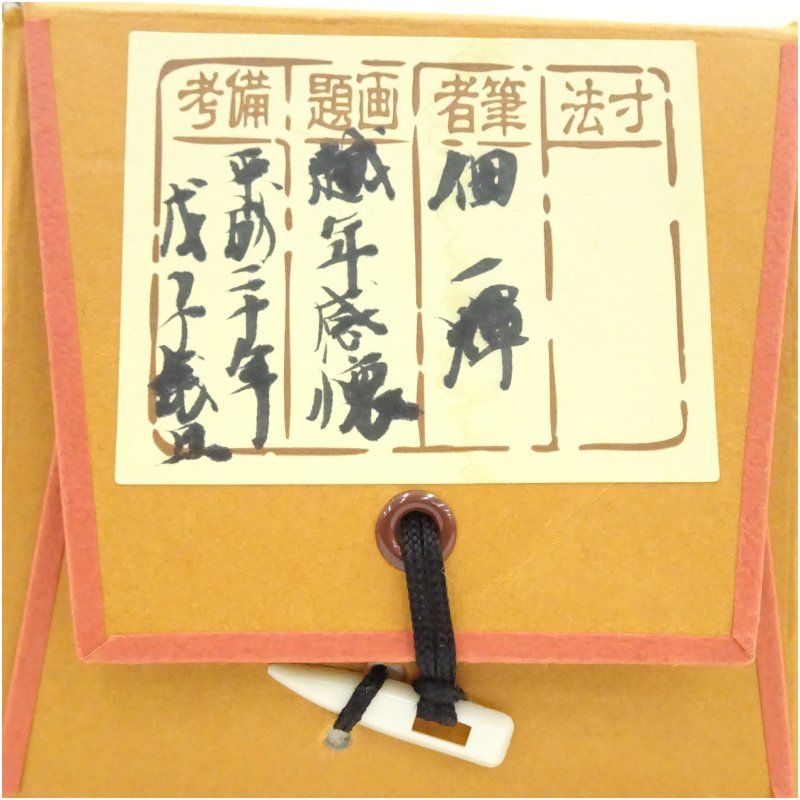 寸法
筆者
佃 一輝
画題
越年感懐
備考
平成二十年
戊子歳旦